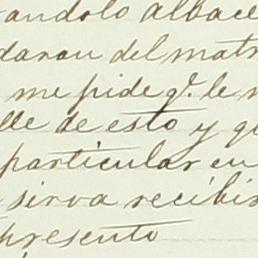 andolo albace
daran del matr
me pide q.e le
lle de esto y q
particular en
sirva recibir
presento